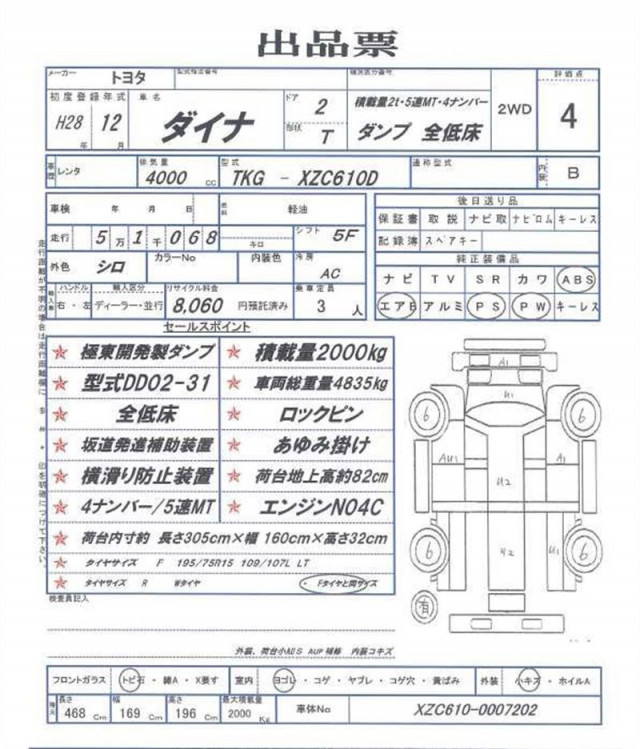 出品票
メーカー トヨタ 型式指定番号 類別区分番号 評価点
初度登録年式 車名 ドア 2 積載量2t・5速MT・4ナンバー 2WD 4
H28年 12月 ダイナ 形状 T ダンプ 全低床
車歴 レンタ 排気量 4000 cc 型式 TKG - XZC610D 通称型式 内装 B
車検 年 月 日 燃料 軽油 後日送り品
走行 5万1千068 キロ シフト 5F 保証書 取説 ナビ取 ナビロム キーレス
記録簿 スペアキー
外色 シロ カラーNo 内装色 冷房 AC 純正装備品
ナビ TV SR カワ ABS
ハンドル 右・左 輸入区分 ディーラー・並行 リサイクル料金 8,060 円預託済み 乗車定員 3人 エアB アルミ PS PW キーレス
セールスポイント
極東開発製ダンプ 積載量2000kg
型式DD02-31 車両総重量4835kg
全低床 ロックピン
坂道発進補助装置 あゆみ掛け
横滑り防止装置 荷台地上高約82cm
4ナンバー/5速MT エンジンN04C
荷台内寸約 長さ305cm×幅 160cm×高さ32cm
タイヤサイズ F 195/75R15 109/107L LT
タイヤサイズ R Wタイヤ ・ Fタイヤと同サイズ
検査員記入
A1
U1
6 6
AU1 A1
U2
U2 U1
6 6
有
内装コキズ
フロントガラス トビ石・線A・X要す 室内 ヨゴレ・コゲ・ヤブレ・コゲ穴・黄ばみ 外装 小キズ・ホイルA
長さ 468 Cm 幅 169 Cm 高さ 196 Cm 最大積載量 2000 Kg 車体No XZC610-0007202